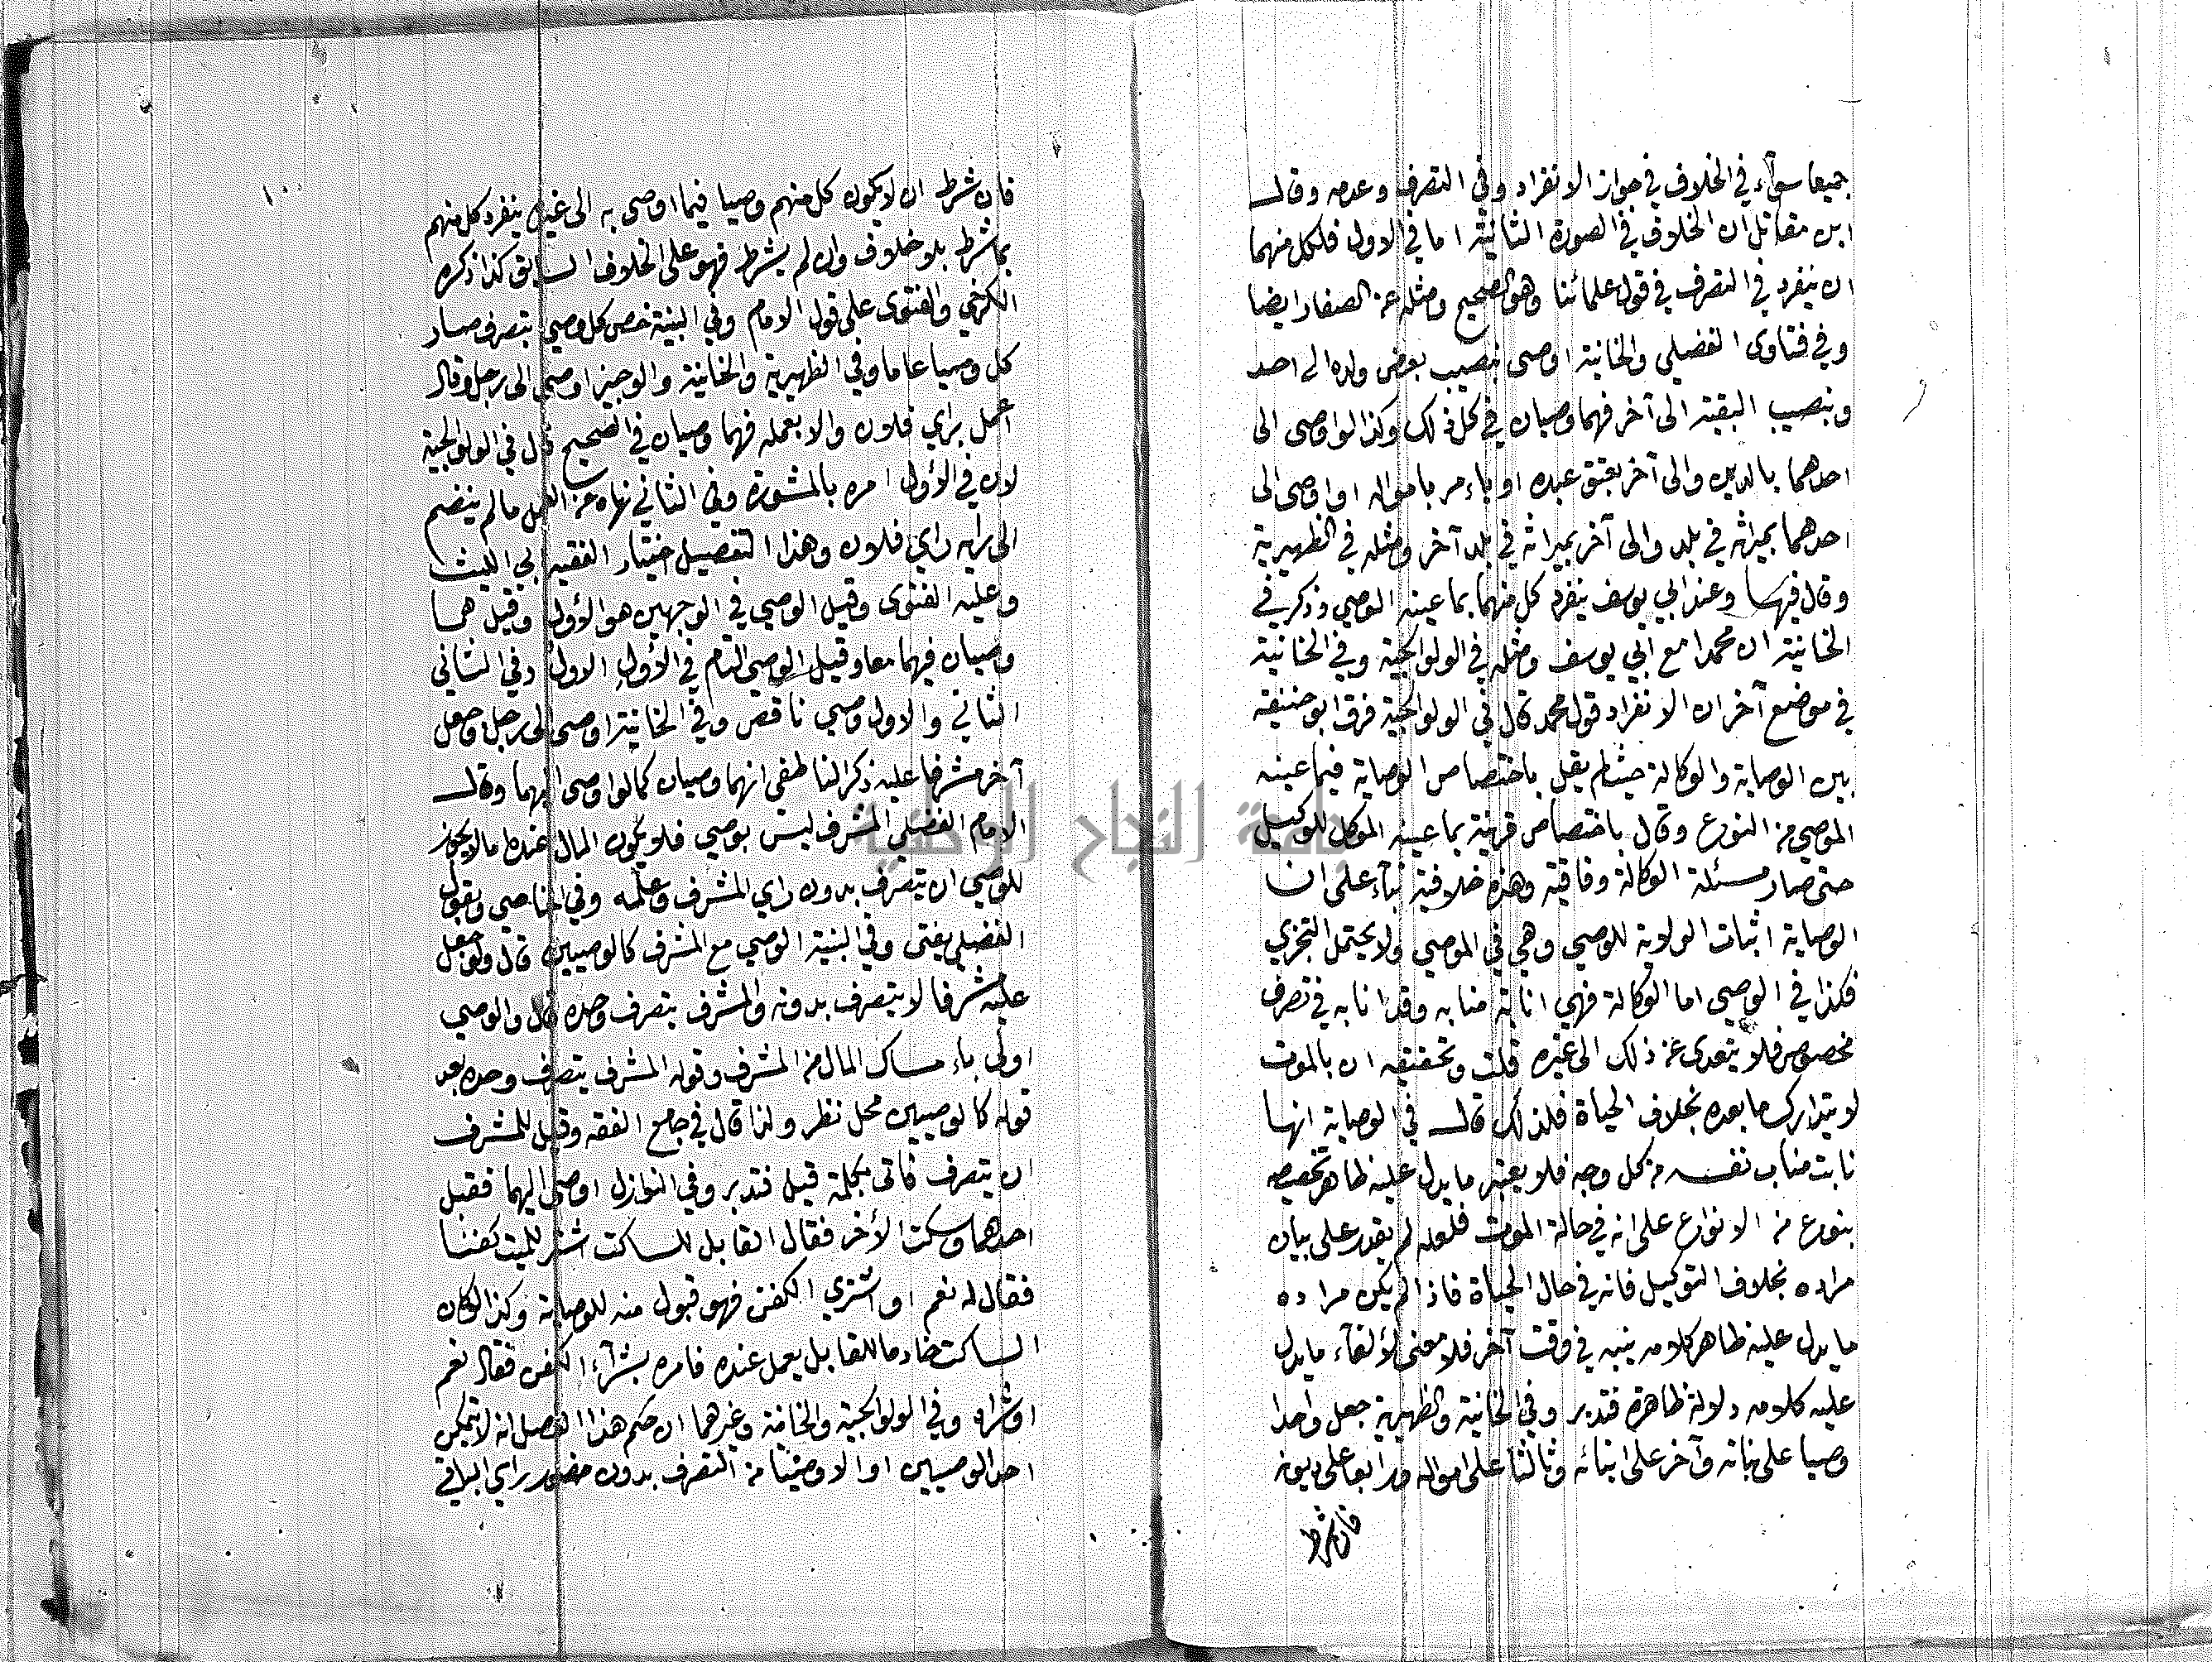 جميعا سوآء في الخلاف في جواز الانفراد وفي التصرف وعدمه وقال
ابن مقاتل ان الخلاف في الصورة الثانية اما في الاول فلكل منهما
ان ينفرد في التصرف في قول علمائنا وهو الصحيح ومثله عن الصفار ايضا
وفي فتاوى الفضيلي والخانية اوصى بنصيب بعض ولده الى احد
وبنصيب البقية الى آخر فهما وصيان في كل ذلك وكذا لو اوصى الى
احدهما بالدين والى آخر بعتق عبده او باءمر باموله او اوصى الى
احدهما بميراثه في بلد والى آخر بميراثه في بلد آخر ومثله في الظهيرية
وقال فيها وعند ابي يوسف ينفرد كل منهما بما عينه الموصي وذكر في
الخانية ان محمدا مع ابي يوسف ومثله في الولوالجية وفي الخانية
في موضع آخر ان الانفراد قول محمد قال في الولوالجية فرق ابو حنيفة
بين الوصاية والوكالة حيث لم يقل باختصاص الوصاية فيما عينه
الموصي من النوع وقال باختصاص بما عينه الموكل للوكيل
حتى صار مسئلة الوكالة وفاقية وهذه خلافية بنآء على ان
الوصاية اثبات الولاية للوصي وهي في الموصي ولا يحتمل التجزي
فكذا في الوصي اما الوكالة فهي انابة منابه وقد انابه في تصرف
مخصوص فلا يتعدى عن ذلك الى غيره قلت وتحقيقه ان بالموت
لا يتدارك ما بعده بخلاف الحياة فلذلك قال في الوصاية انها
نابت مناب نفسه من كل وجه فلا يعتبر ما يدل عليه ظاهر تخصيصه
بنوع من الانواع على انه في حالة الموت فلعله لم يقدر على بيان
مراده بخلاف التوكيل فانه في حال الحياة فاذا لم يكن مراده
ما يدل عليه ظاهر كلامه ينبه في وقت آخر فلا معنى لألغآء ما يدل
عليه كلامه دلالة ظاهرة فتدبر وفي الخانية والظهيرية جعل واحدا
وصيا على بناته وآخر على ابنائه وثالثا على امواله ورابعا على ديونه
فان شرط
١٠٠
فان شرط ان لا يكون كل منهم وصيا فيما اوصى به الى غيره ينفرد كل منهم
بما شرط بلا خلاف وان لم يشرط فهو على الخلاف السابق كذا ذكره
الكرخي والفتوى على قول الامام وفي البنية خص كل وصي بتصرف صار
كل وصيا عاما وفي الظهيرية والخانية والوجيز اوصى الى رجل وقال
اعمل براي فلان والا بعمله فهما وصيان في الصحيح قال في الولوالجية
لان في الأول امره بالمشورة وفي الثاني نهاه عن العمل ما لم ينضم
الى رايه راي فلان وهذا التفصيل اختيار الفقيه ابي الليث
وعليه الفتوى وقيل الوصي في الوجهين هو الأول وقيل هما
وصيان فيهما معا وقيل الوصي التام في الأول الاول وفي الثاني
الثاني والاول وصي ناقص وفي الخانية اوصى الى رجل وجعل
آخر مشرفا عليه ذكر الناطفي انهما وصيان كما لو اوصى اليهما وقال
الامام الفضيلي المشرف ليس بوصي فلا يكون المال عنده ما لا يجوز
للوصي ان يتصرف بدون راي المشرف وعلمه وفي الخاصي وبقول
الفضيلي يفتى وفي البنية الوصي مع المشرف كالوصيين قال ولو جعل
عليه مشرفا لا يتصرف بدونه والمشرف يتصرف وحده قال والوصي
اولى باءمساك المال من المشرف وقوله المشرف يتصرف وحده بعد
قوله كالوصيين محل نظر ولذا قال في جامع الفقه وقيل للمشرف
ان يتصرف فاتى بكلمة قيل فتدبر وفي النوازل اوصى اليهما فقبل
احدهما وسكت الأخر فقال القابل للساكت اشتر للميت كفنا
فقال له نعم او اشتري الكفن فهو قبول منه للوصاية وكذا لو كان
الساكت خادما للقابل يعمل عنده فامره بشرآء الكفن فقال نعم
او شراه وفي الولوالجية والخانية وغيرهما ان حكم هذا الفصل انه لا يتمكن
احد الوصيين او الاوصيا من التصرف بدون حضور راي الباقي
جامعة النجاح الوطنية